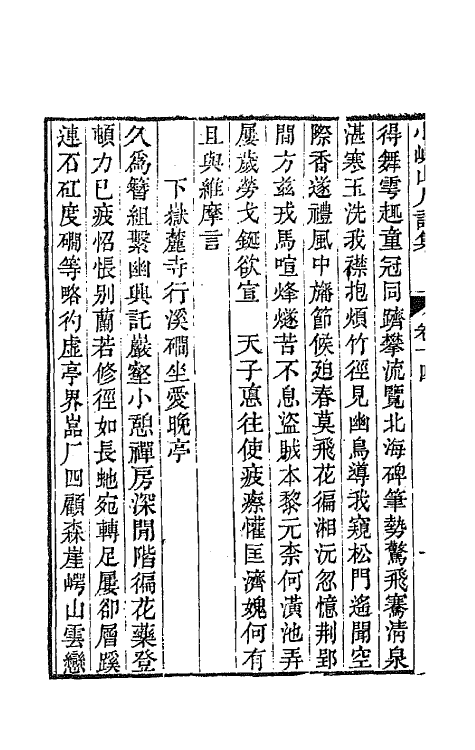 得舞雩趣童冠同躋攀流覽北海碑筆勢驚飛騫清泉
湛寒玉洗我襟抱煩竹徑見幽鳥導我窺松門遙聞空
際香遂禮風中旛節候廹春莫飛花徧湘沅忽憶荆郢
間方兹戎馬喧烽燧苦不息盜賊本黎元柰何潢池弄
屢歲勞戈鋋欲宣　天子悳往使疲瘵懽匡濟媿何有
且與維摩言
下嶽麓寺行溪磵坐愛晚亭
久爲簪組繫幽興託巖壑小憩禪房深閒階徧花藥登
頓力已疲怊悵别蘭若修徑如長虵宛轉足屢卻層蹊
連石矼度磵等略彴虚亭界嵓厂四顧森崖崿山雲戀